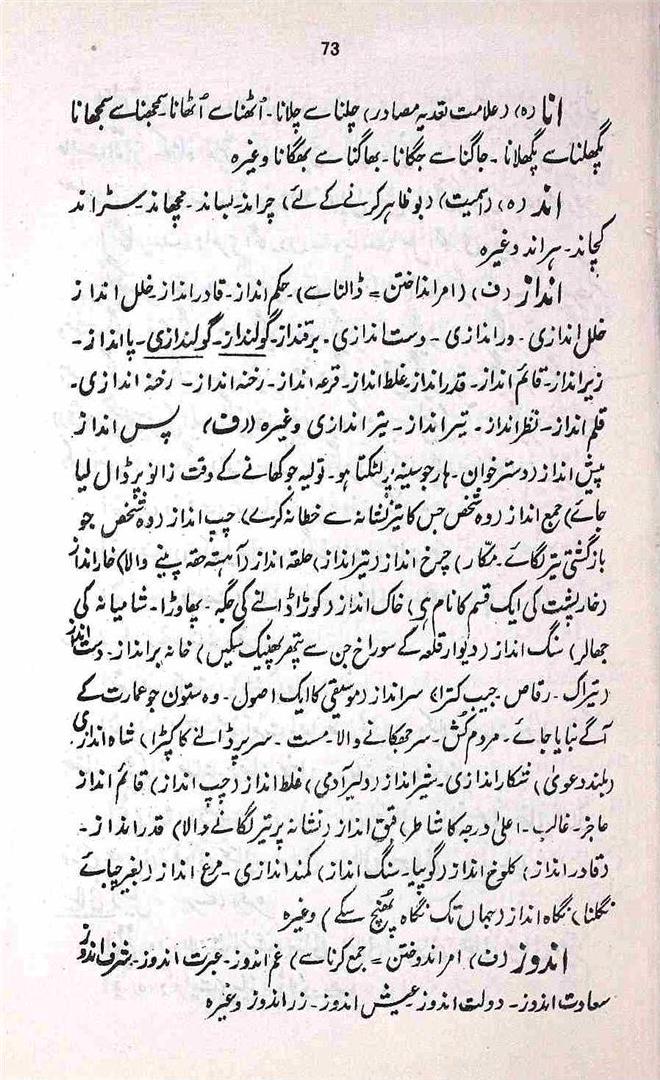 73
انا (ہ) (علامت تعدیہ مصادر) چلنا سے چلانا۔ اُٹھنا سے اُٹھانا۔ سمجھنا سے سمجھانا
پگھلنا سے پگھلانا۔ جاگنا سے جگانا۔ بھاگنا سے بھگانا وغیرہ
اند (ہ) (اسمیت) (بو ظاہر کرنے کے لئے) چراند۔ بساند۔ مچھاند۔ سڑاند
کچاند۔ ہراند وغیرہ
انداز (ف) (امر انداختن = ڈالنا سے) حکم انداز۔ قادر انداز۔ خلل انداز
خلل اندازی۔ در اندازی۔ دست اندازی۔ برقنداز۔ گولنداز۔ گولندازی۔ پا انداز۔
زیر انداز۔ قائم انداز۔ قدر انداز۔ غلط انداز۔ قرعہ انداز۔ رخنہ انداز۔ رخنہ اندازی۔
قلم انداز۔ نظر انداز۔ تیر انداز۔ تیر اندازی وغیرہ (ف) پس انداز
پیش انداز (دسترخوان۔ ہار جو سینہ پر لٹکتا ہو۔ تولیہ جو کھانے کے وقت زانو پر ڈال لیا
جائے) جمع انداز (وہ شخص جس کا تیر نشانہ سے خطا نہ کرے) چپ انداز (وہ شخص جو
بازگشتی تیر لگائے۔ مکّار) چرخ انداز (تیر انداز) حلقہ انداز (آہستہ حقہ پینے والا) خار انداز
(خار پشت کی ایک قسم کا نام ہی) خاک انداز (کوڑا ڈالنے کی جگہ۔ پھاوڑا۔ شامیانہ کی
جھالر) سنگ انداز (دیوار قلعہ کے سوراخ جن سے پتھر پھینک سکیں) خانہ بر انداز۔ دست انداز
(تیراک۔ رقاص۔ جیب کترا) سر انداز (موسیقی کا ایک اصول۔ وہ ستون جو عمارت کے
آگے بنایا جائے۔ مردم کش۔ سر جھکانے والا۔ مست۔ سر پر ڈالنے کا کپڑا) شاہ اندازی
(بلند دعویٰ) شکار اندازی۔ شیر انداز (دلیر آدمی) غلط انداز (چپ انداز) قائم انداز
عاجز۔ غالب۔ اعلیٰ درجہ کا شاطر) قبق انداز (نشانہ پر تیر لگانے والا) قدر انداز۔
(قادر انداز) کلوخ انداز (گوپیا۔ سنگ انداز) کمند اندازی۔ مرغ انداز (بغیر چبائے
نگلنا) نگاہ انداز (جہاں تک نگاہ پہنچ سکے) وغیرہ
اندوز (ف) امر اندوختن = جمع کرنا سے) غم اندوز۔ عبرت اندوز۔ شرف اندوز
سعادت اندوز۔ دولت اندوز عیش اندوز۔ زر اندوز وغیرہ